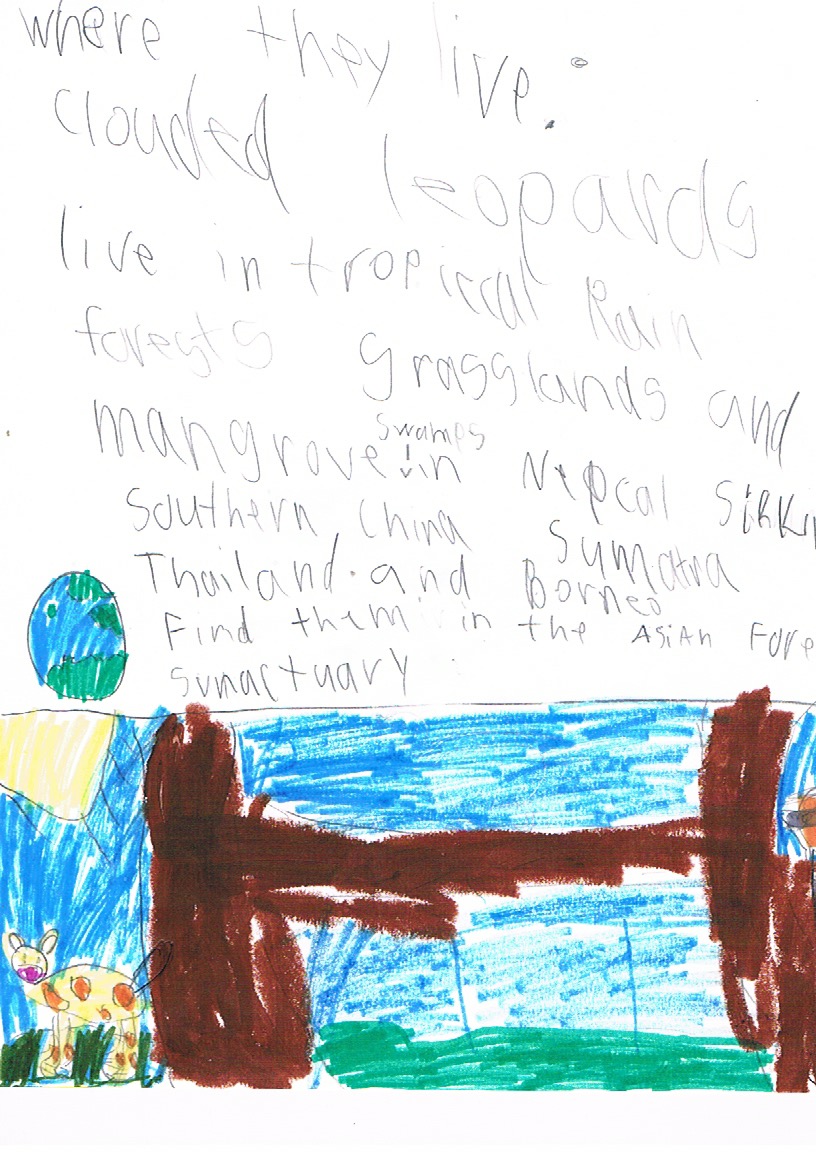 where they live:
clouded leopards
live in tropiccal Rain
forests grasslands and
swamps
mangrove in Nepcal Sikki
Southern China Sumatra
Thailand. and Borneo
Find them in the Asian Fore
sunactuary